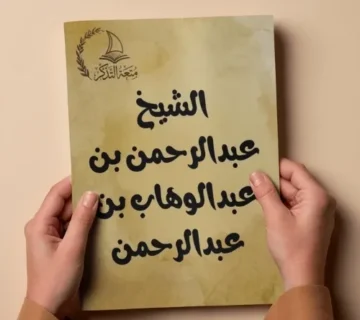 متعة التذكر
الشيخ
عبدالرحمن بن
عبدالوهاب بن
عبدالرحمن